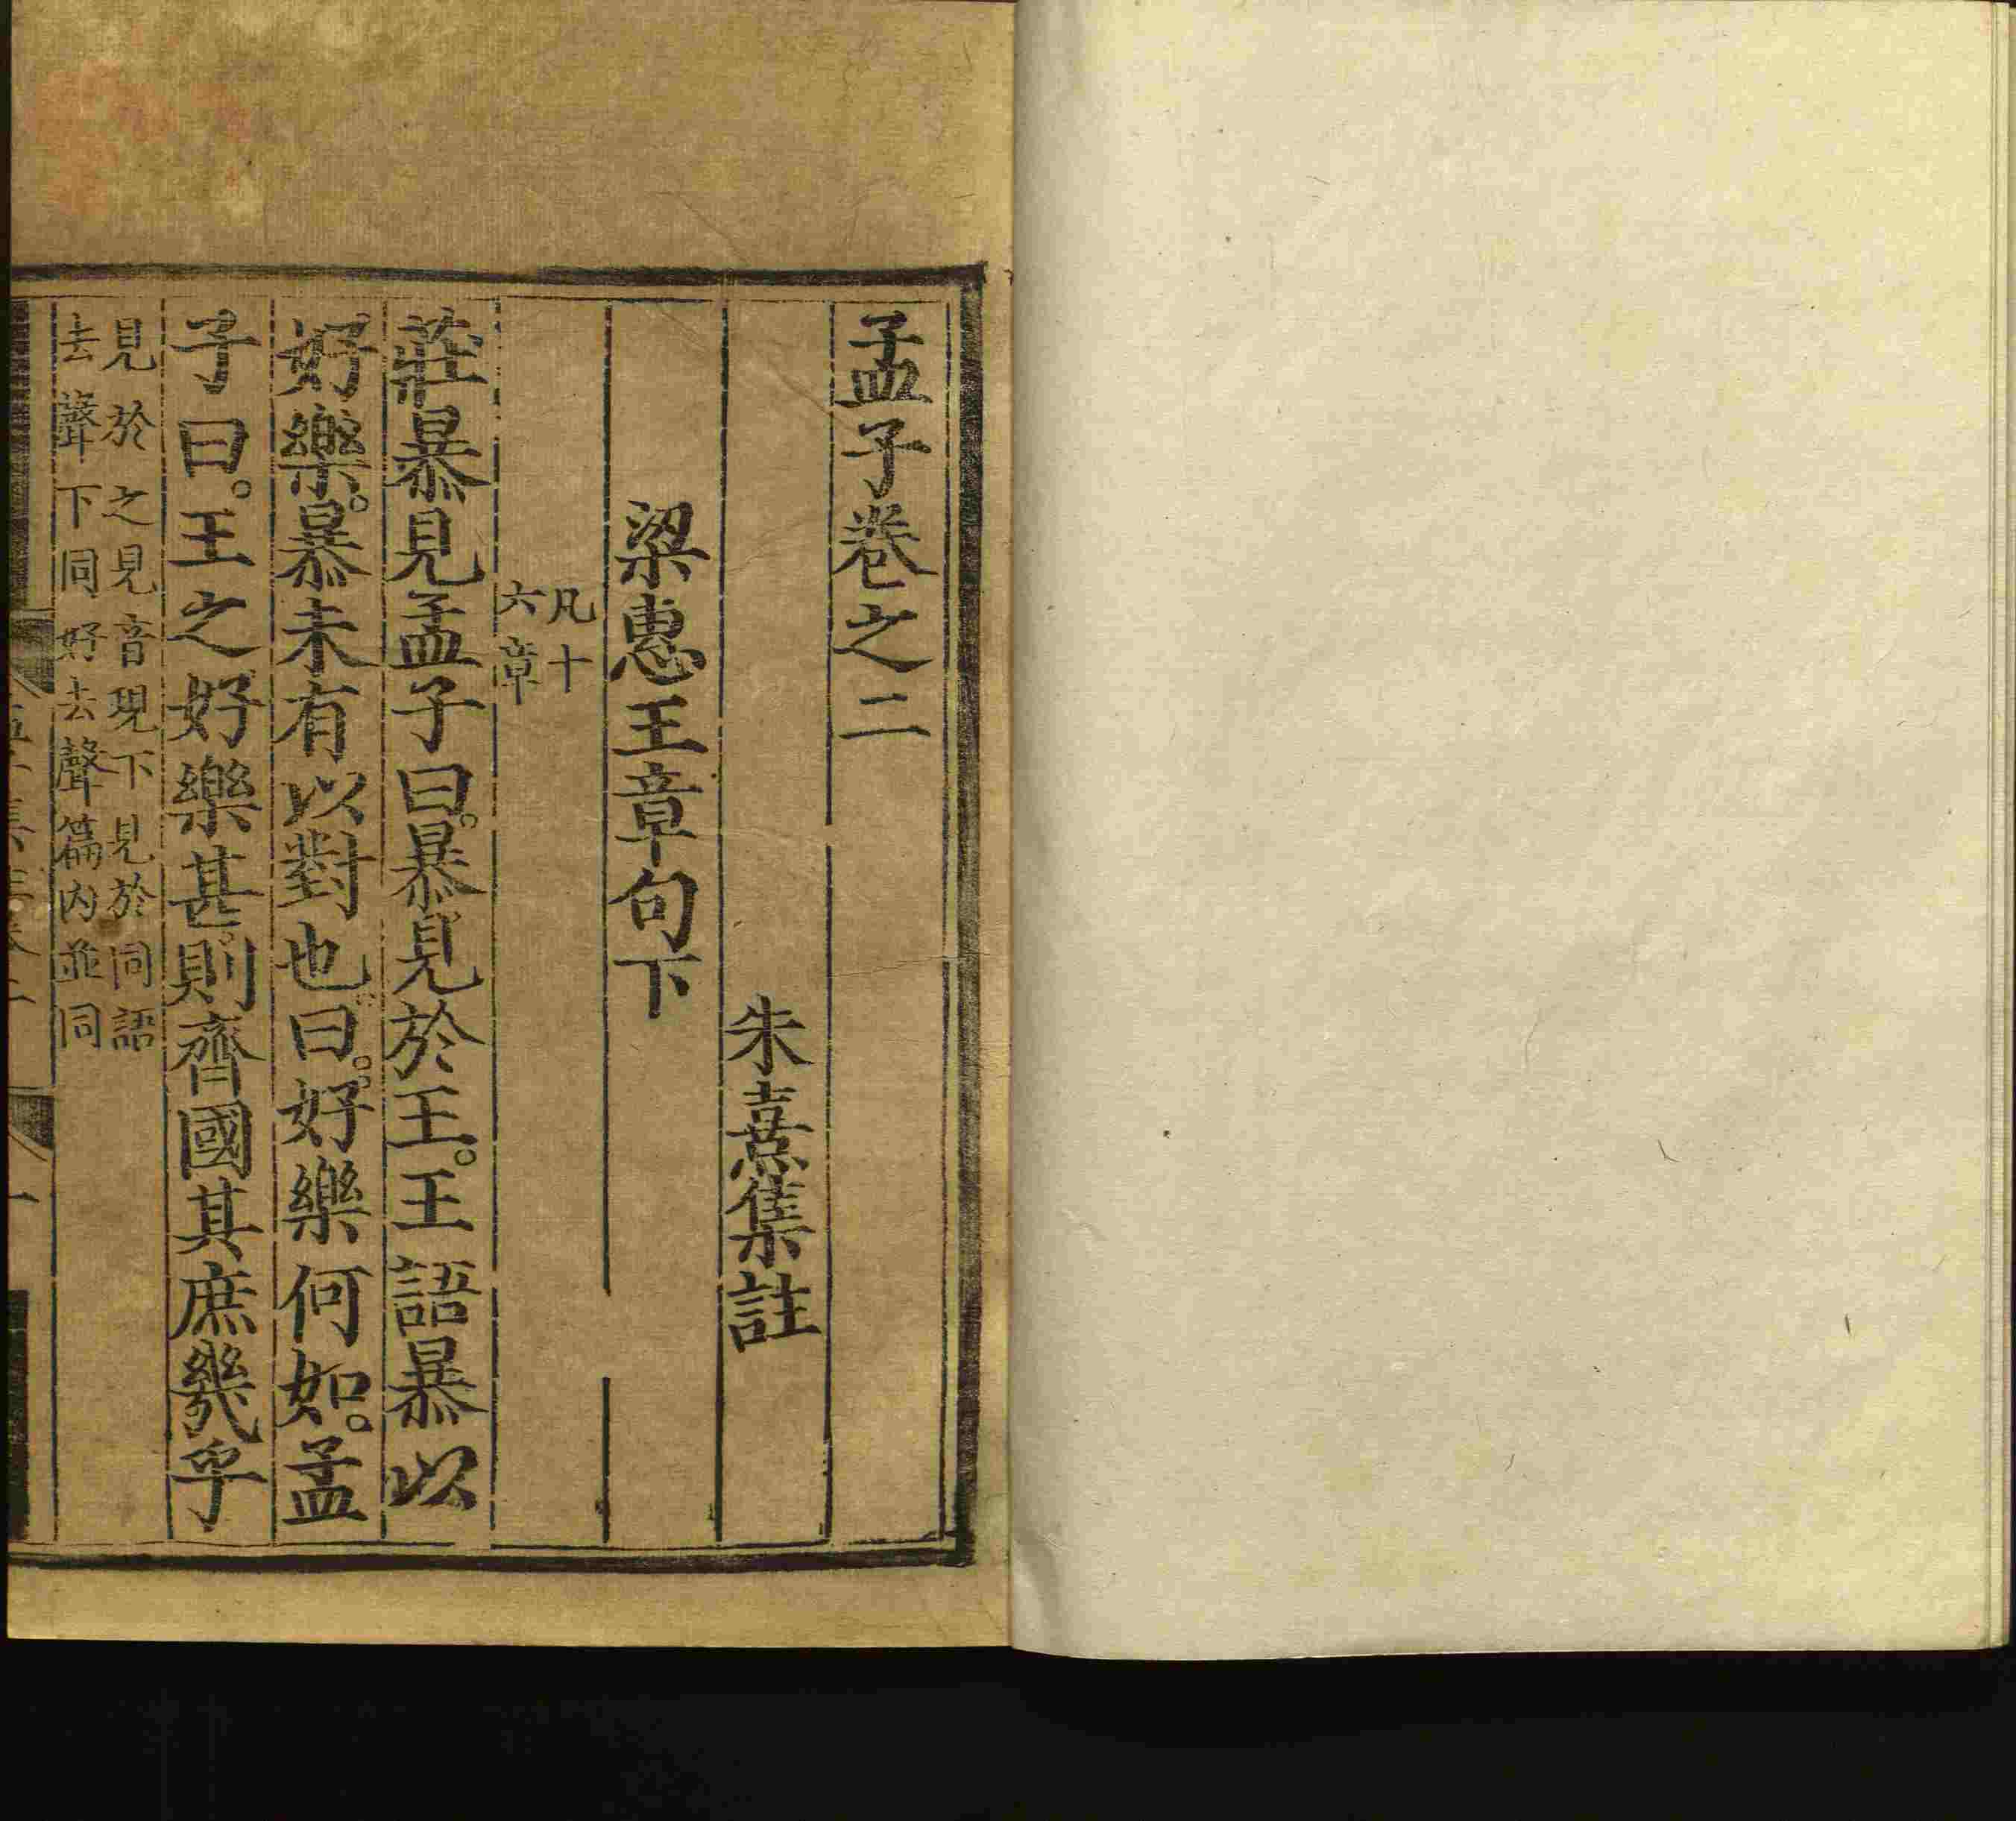 孟子卷之二
朱熹集註
梁惠王章句下
凡十
六章
莊暴見孟子曰。暴見於王。王語暴以
好樂。暴未有以對也。曰。好樂何如。孟
子曰。王之好樂甚則齊國其庶幾乎
見於之見音現下見於同語
去聲下同好去聲篇內並同